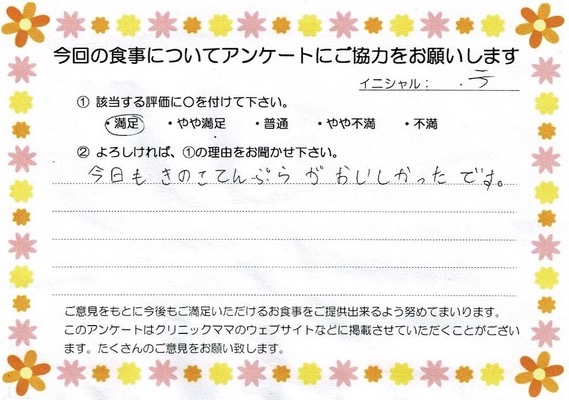 今回の食事についてアンケートにご協力をお願いします
イニシャル： . う
① 該当する評価に〇を付けて下さい。
・満足 ・やや満足 ・普通 ・やや不満 ・不満
② よろしければ、①の理由をお聞かせ下さい。
今日も きのこてんぷら が おいしかった です。
ご意見をもとに今後もご満足いただけるお食事をご提供出来るよう努めてまいります。
このアンケートはクリニックママのウェブサイトなどに掲載させていただくことがござい
ます。たくさんのご意見をお願い致します。